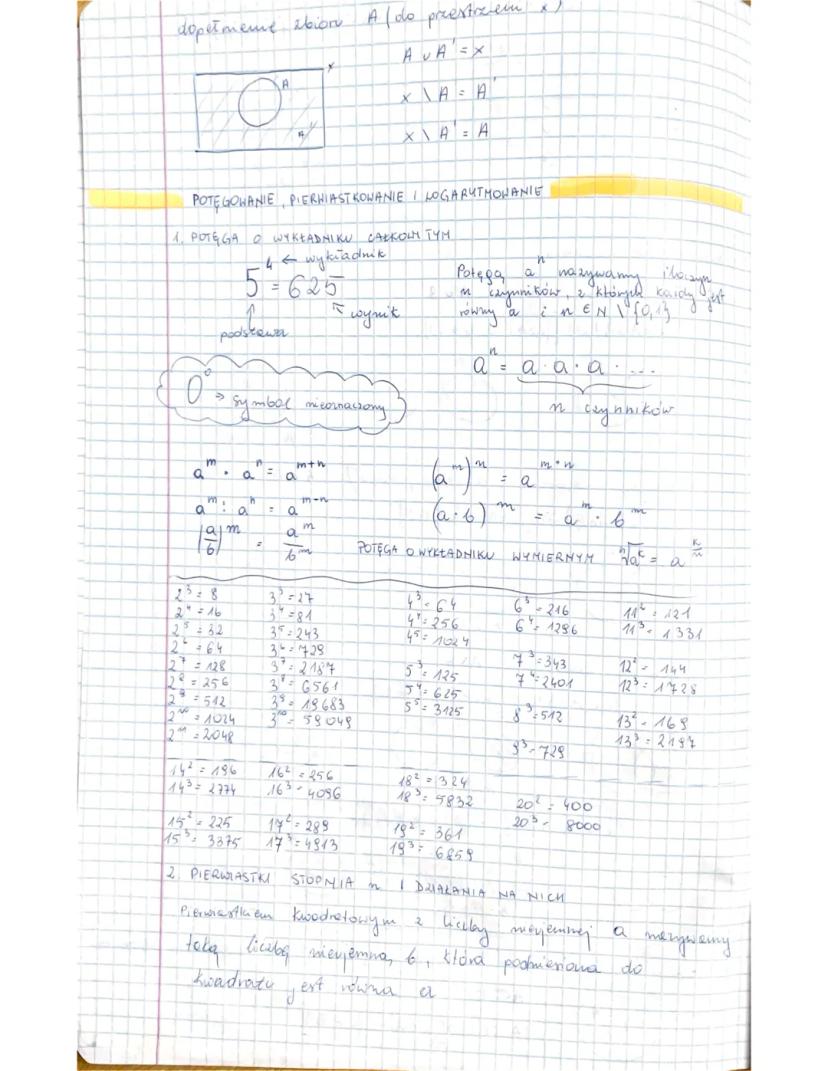 dopełnienie zbioru A (do przestrzeni x)
A ∪ A' = x
x \ A = A'
x \ A' = A
x
A
A'
POTĘGOWANIE, PIERWIASTKOWANIE I LOGARYTMOWANIE
1. POTĘGA O WYKŁADNIKU CAŁKOWITYM
5⁴ = 625
← wykładnik
↖ wynik
↑ podstawa
Potęgą aⁿ nazywamy iloczyn
n czynników, z których każdy jest
równy a i n ∈ N \ {0,1}
aⁿ = a · a · a · ...
n czynników
0⁰ → symbol nieoznaczony
aᵐ · aⁿ = aᵐ⁺ⁿ
(aᵐ)ⁿ = aᵐ·ⁿ
aᵐ : aⁿ = aᵐ⁻ⁿ
(a·b)ᵐ = aᵐ · bᵐ
(a/b)ᵐ = aᵐ/bᵐ
POTĘGA O WYKŁADNIKU WYMIERNYM ⁿ√aᵏ = a^(k/n)
2³ = 8
2⁴ = 16
2⁵ = 32
2⁶ = 64
2⁷ = 128
2⁸ = 256
2⁹ = 512
2¹⁰ = 1024
2¹¹ = 2048
3³ = 27
3⁴ = 81
3⁵ = 243
3⁶ = 729
3⁷ = 2187
3⁸ = 6561
3⁹ = 19683
3¹⁰ = 59049
4³ = 64
4⁴ = 256
4⁵ = 1024
5³ = 125
5⁴ = 625
5⁵ = 3125
6³ = 216
6⁴ = 1296
7³ = 343
7⁴ = 2401
8³ = 512
9³ = 729
11² = 121
11³ = 1331
12² = 144
12³ = 1728
13² = 169
13³ = 2197
14² = 196
14³ = 2774
15² = 225
15³ = 3375
16² = 256
16³ = 4096
17² = 289
17³ = 4913
18² = 324
18³ = 5832
19² = 361
19³ = 6859
20² = 400
20³ = 8000
2. PIERWIASTKI STOPNIA n I DZIAŁANIA NA NICH
Pierwiastkiem kwadratowym z liczby nieujemnej a nazywamy
taką liczbę nieujemną b, która podniesiona do
kwadratu jest równa a